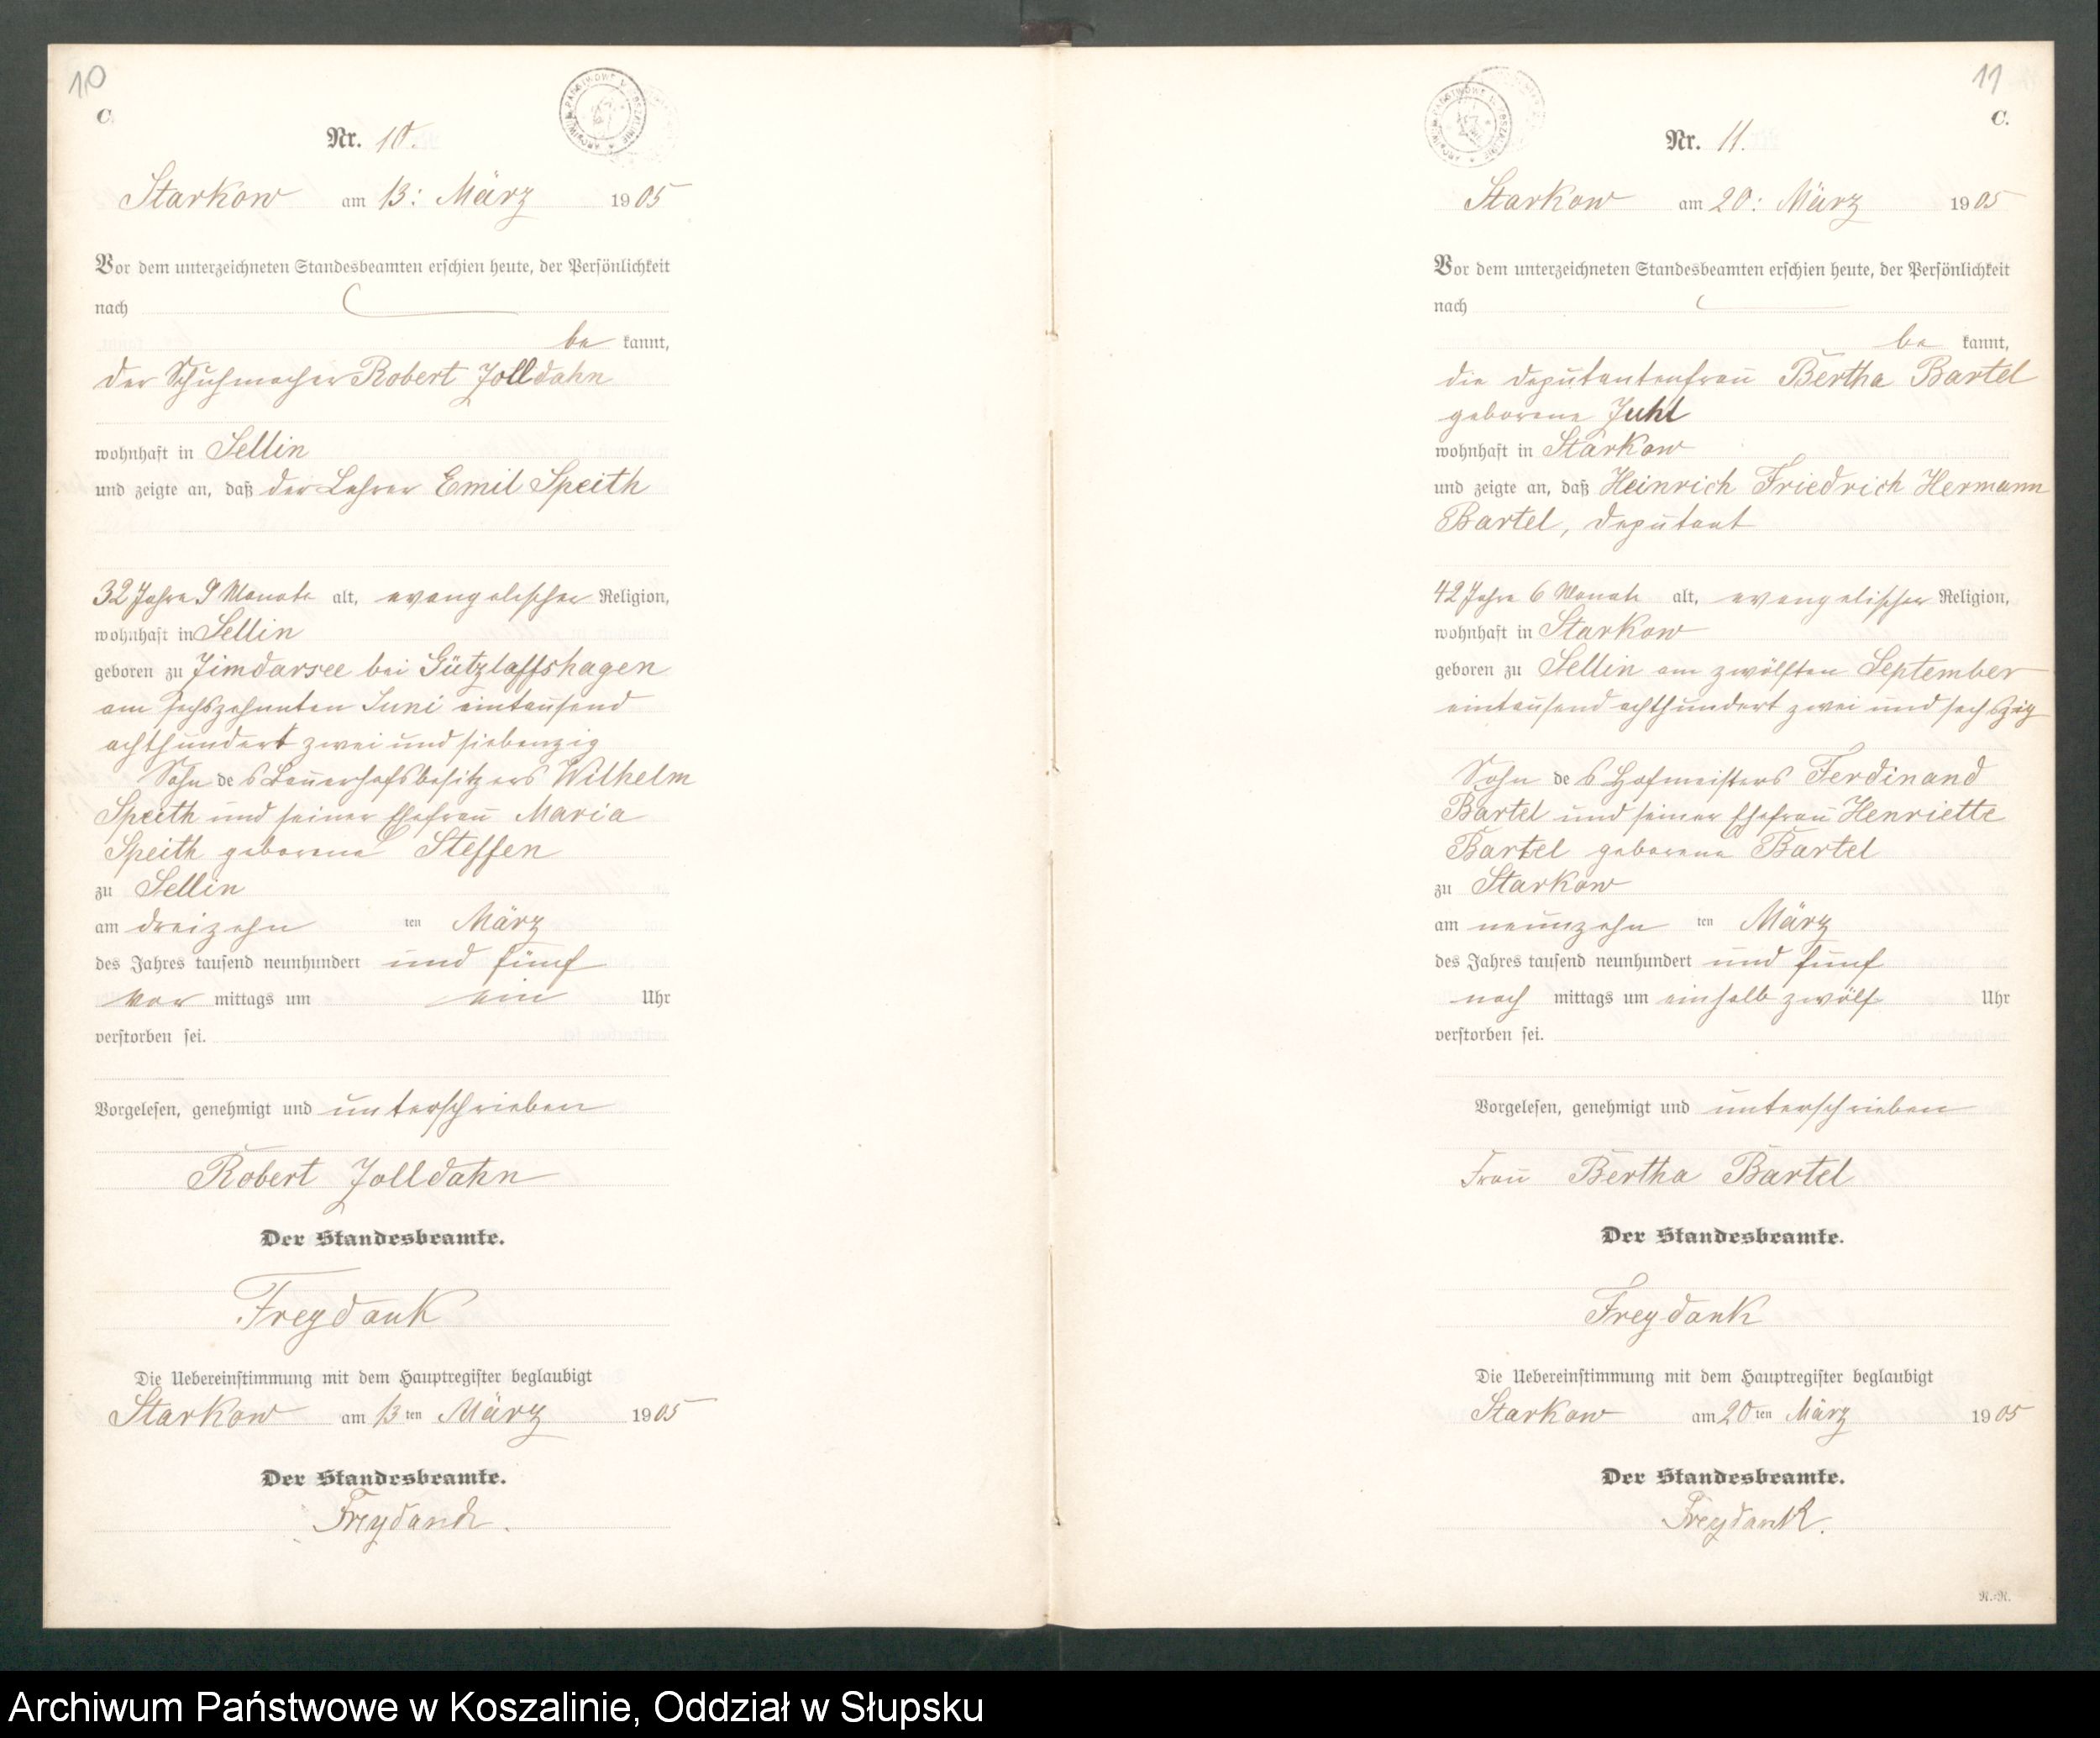 10
C.
Nr. 10.
Starkow am 13: März 1905
Vor dem unterzeichneten Standesbeamten erschien heute, der Persönlichkeit
nach
be kannt,
der Schuhmacher Robert Jolldahn
wohnhaft in Sellin
und zeigte an, daß der Lehrer Emil Speith
32 Jahre 9 Monate alt, evangelischer Religion,
wohnhaft in Sellin
geboren zu Zimdarsee bei Gützlaffshagen
am sechszehnten Juni eintausend
achthundert zwei und siebenzig
Sohn des Bauerhofsbesitzers Wilhelm
Speith und seiner Ehefrau Maria
Speith geborene Steffen
zu Sellin
am dreizehn ten März
des Jahres tausend neunhundert und fünf
vor mittags um ein Uhr
verstorben sei.
Vorgelesen, genehmigt und unterschrieben
Robert Jolldahn
Der Standesbeamte.
Freydank
Die Uebereinstimmung mit dem Hauptregister beglaubigt
Starkow am 13 ten März 1905
Der Standesbeamte.
Freydank.
11
C.
Nr. 11.
Starkow am 20: März 1905
Vor dem unterzeichneten Standesbeamten erschien heute, der Persönlichkeit
nach
be kannt,
die Deputantenfrau Bertha Bartel
geborene Juhl
wohnhaft in Starkow
und zeigte an, daß Heinrich Friedrich Hermann
Bartel, Deputant
42 Jahre 6 Monate alt, evangelischer Religion,
wohnhaft in Starkow
geboren zu Sellin am zwölften September
eintausend achthundert zwei und sechszig
Sohn des Hofmeisters Ferdinand
Bartel und seiner Ehefrau Henriette
Bartel geborene Bartel
zu Starkow
am neunzehn ten März
des Jahres tausend neunhundert und fünf
nach mittags um einhalb zwölf Uhr
verstorben sei.
Vorgelesen, genehmigt und unterschrieben
Frau Bertha Bartel
Der Standesbeamte.
Freydank
Die Uebereinstimmung mit dem Hauptregister beglaubigt
Starkow am 20 ten März 1905
Der Standesbeamte.
Freydank.
R.-R.
Archiwum Państwowe w Koszalinie, Oddział w Słupsku